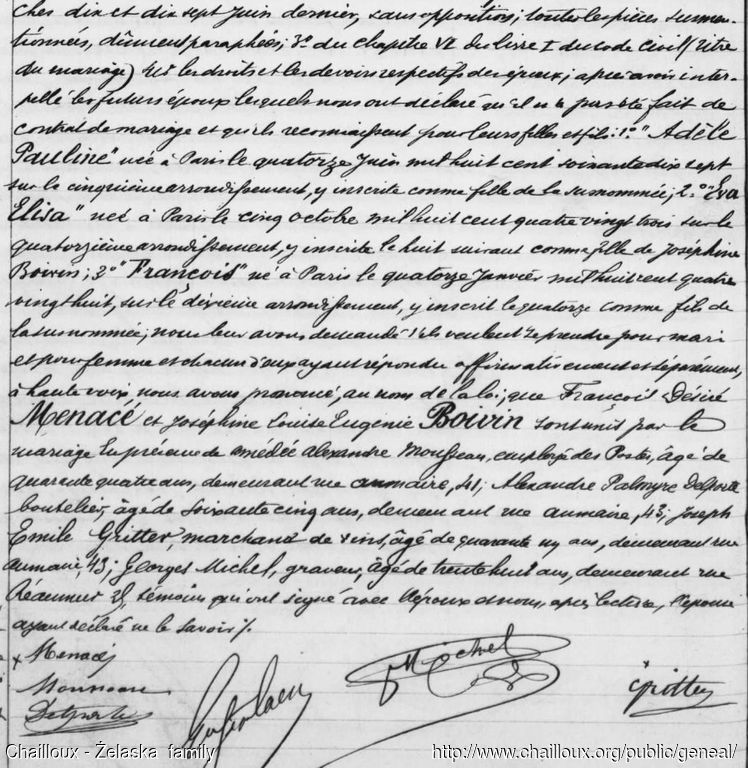 ches dix et dix sept Juin dernier, sans opposition; toutes les pièces susmen-
tionnées, dûment paraphées; 3° du chapitre VI du livre I du Code Civil (titre
du mariage) sur les droits et les devoirs respectifs des époux; après avoir inter-
pellé les futurs époux lesquels nous ont déclaré qu'il n'a pas été fait de
contrat de mariage et qu'ils reconnaissent pour leurs filles et fils: 1° "Adèle
Pauline" née à Paris le quatorze Juin mil huit cent soixante dix sept
sur le cinquième arrondissement, y inscrite comme fille de la susnommée; 2° "Eva
Elisa" née à Paris le cinq octobre mil huit cent quatre vingt trois sur le
quatorzième arrondissement, y inscrite le huit suivant comme fille de Joséphine
Boivin; 3° "François" né à Paris le quatorze Janvier mil huit cent quatre
vingt huit, sur le arrondissement, y inscrit le quatorze comme fils de
la susnommée; nous leur avons demandé s'ils veulent se prendre pour mari
et pour femme et chacun d'eux ayant répondu affirmativement et séparément,
à haute voix nous avons prononcé, au nom de la loi, que François Désiré
Menacé et Joséphine Louise Eugénie Boivin sont unis par le
mariage En présence de Amédée Alexandre Mousseau, employé des Postes, âgé de
quarante quatre ans, demeurant rue aumaire, 41; Alexandre Palmyre Delporte
bouteliez, âgé de soixante cinq ans, demeurant rue aumaire, 43; Joseph
Emile Gritter, marchand de vins, âgé de quarante un ans, demeurant rue
aumaire, 43; Georges Michel, graveur, âgé de trente huit ans, demeurant rue
Réaumur témoins qui ont signé avec l'époux et nous, après lecture, l'épouse
ayant déclaré ne le savoir ./.
x Menacé
Mousseau
Delporte
Michel
Gritter
Chailloux - Żelaska family
http://www.chailloux.org/public/geneal/